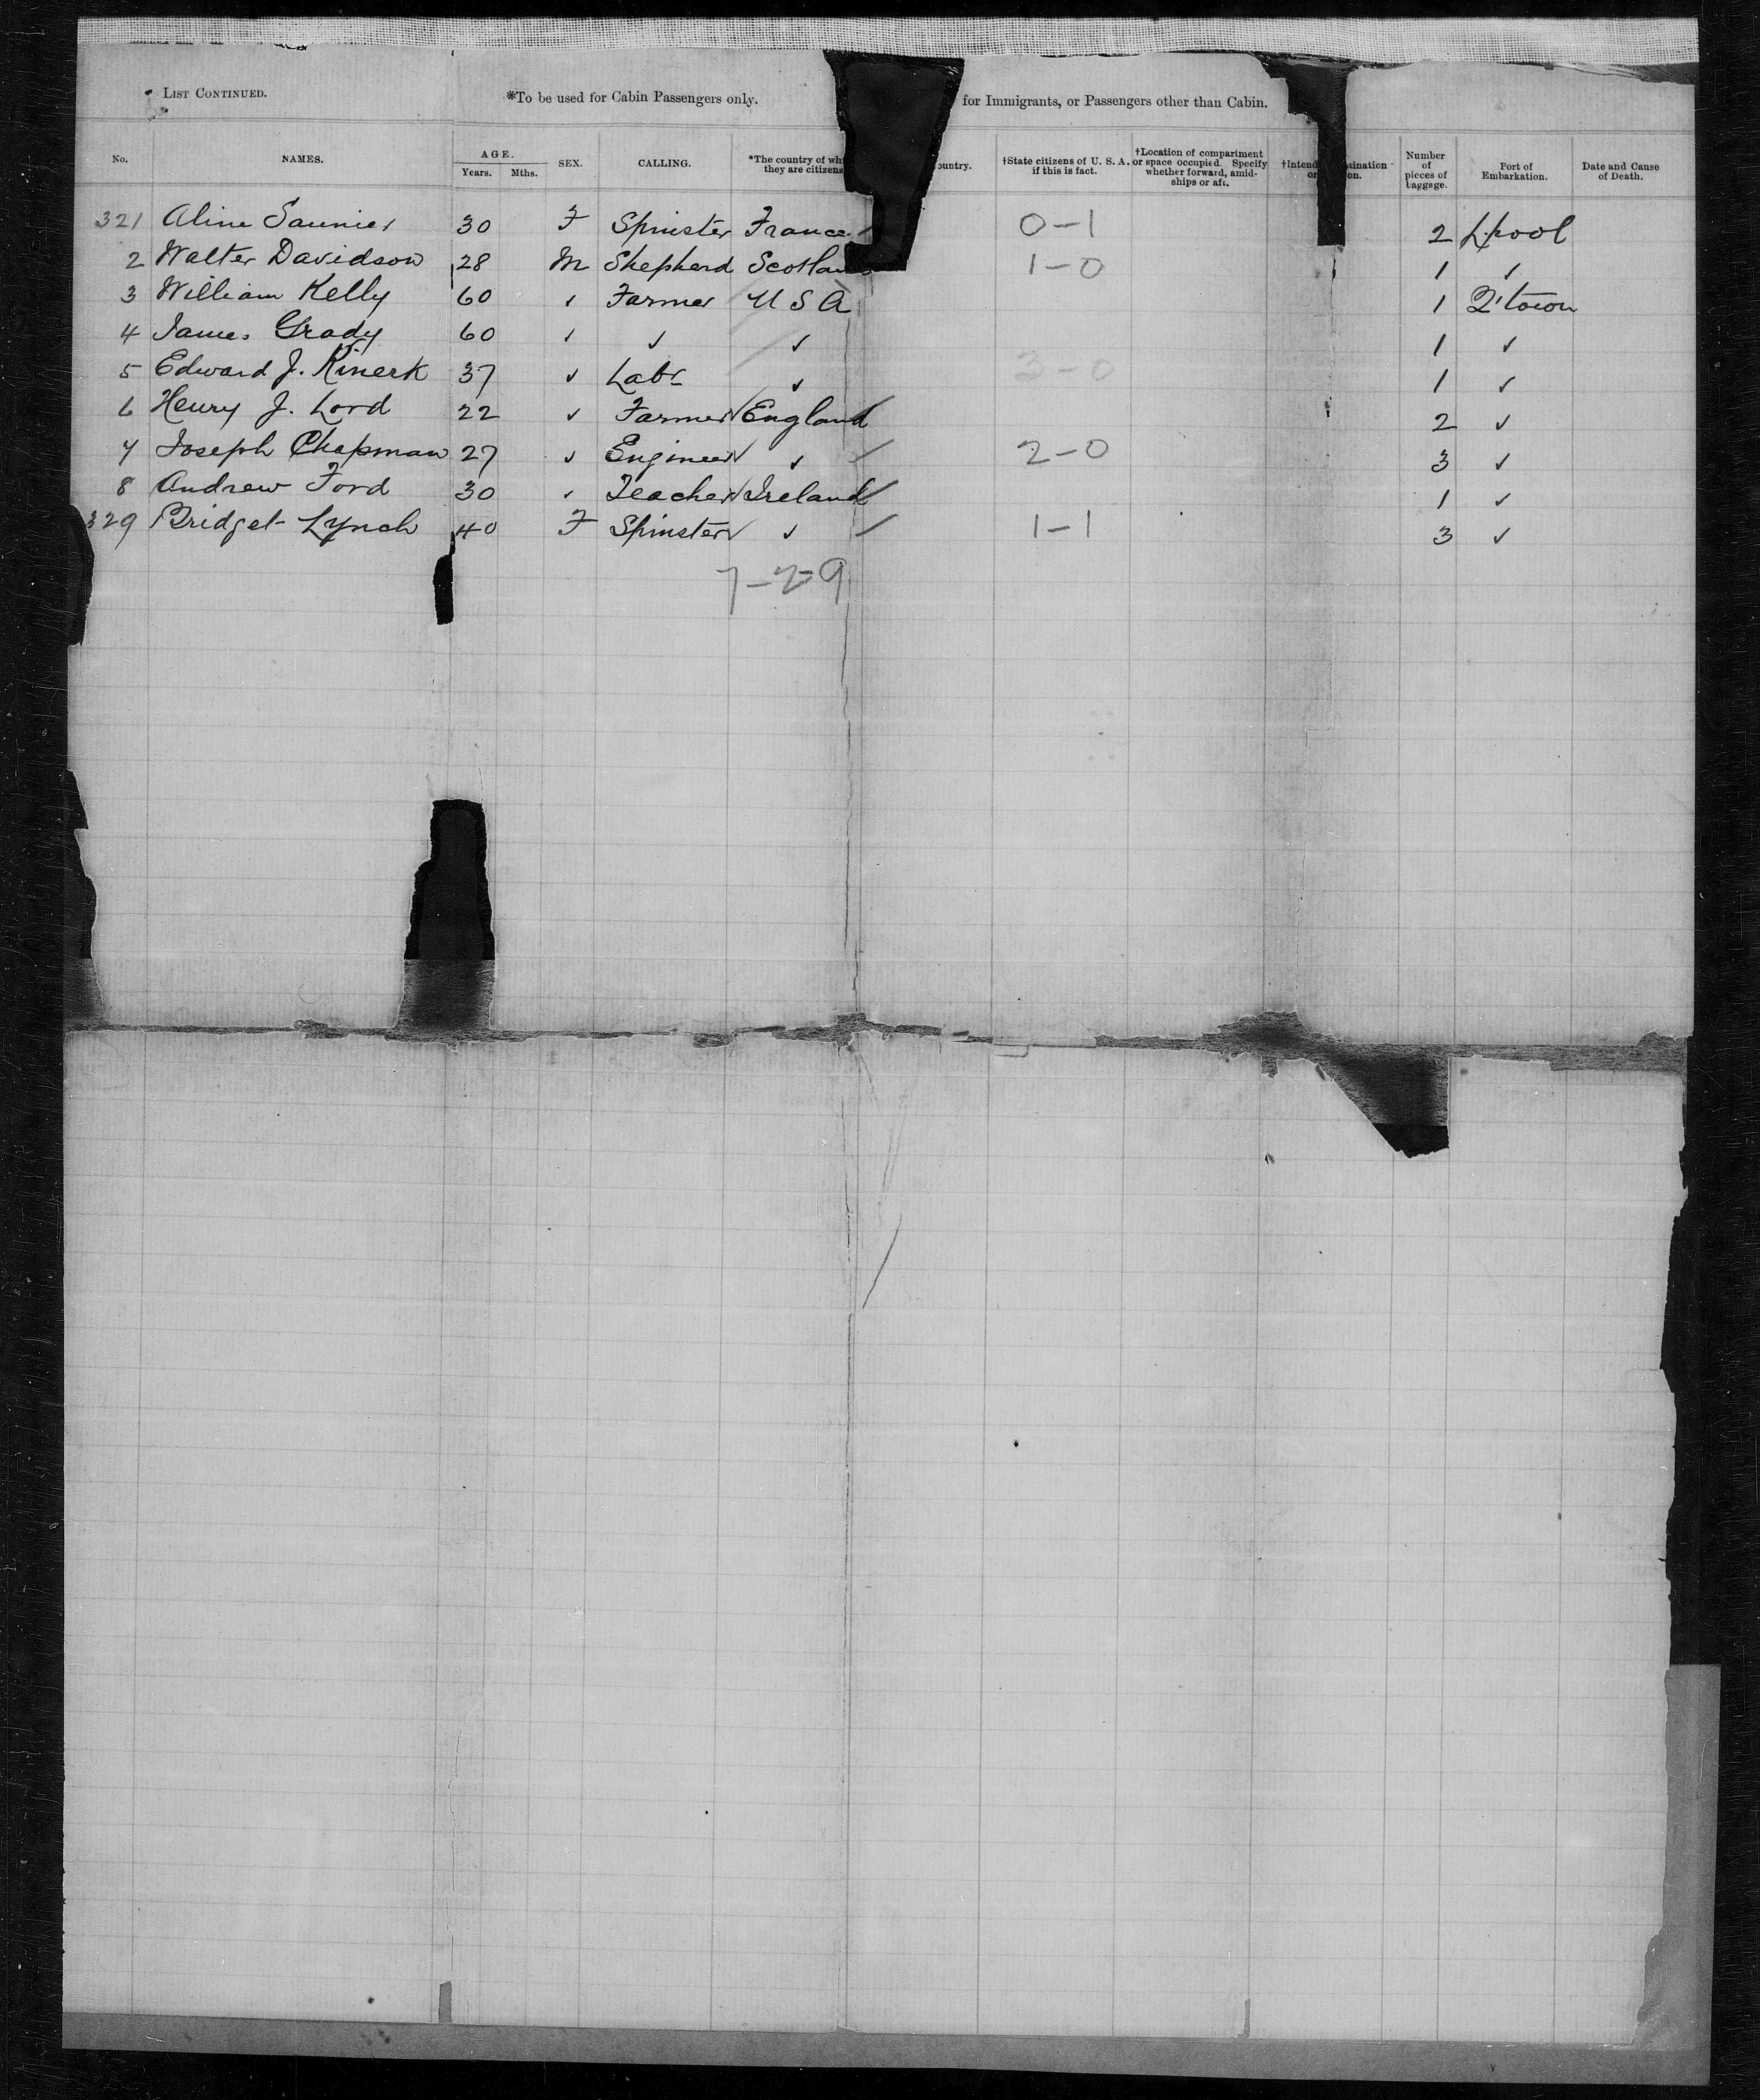 LIST CONTINUED. *To be used for Cabin Passengers only. for Immigrants, or Passengers other than Cabin.
No. NAMES. AGE. Years. Mths. SEX. CALLING. *The country of whi they are citizens ountry. †State citizens of U. S. A. if this is fact. †Location of compartment or space occupied. Specify whether forward, amid-ships or aft. †Intend tination or on. Number of pieces of baggage. Port of Embarkation. Date and Cause of Death.
321 Aline Saunier 30 F Spinster France 0-1 2 L'pool
2 Walter Davidson 28 M Shepherd Scotlan 1-0 1 ✓
3 William Kelly 60 ✓ Farmer U S A 1 Q'town
4 James Grady 60 ✓ ✓ ✓ 1 ✓
5 Edward J. Kinerk 37 ✓ Labr ✓ 3-0 1 ✓
6 Henry J. Lord 22 ✓ Farmer England 2 ✓
7 Joseph Chapman 27 ✓ Engineer ✓ 2-0 3 ✓
8 Andrew Ford 30 ✓ Teacher Ireland 1 ✓
329 Bridget Lynch 40 F Spinster ✓ 1-1 3 ✓
7-2-9